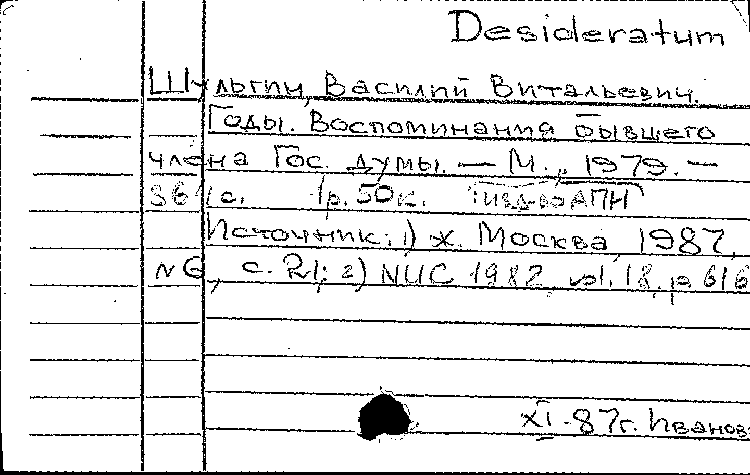 Desideratum
Шульгин, Василий Витальевич.
Годы. Воспоминания бывшего
члена Гос. думы. — М., 1979. —
36 с. 1р. 50к. изд-во АПН
Источник: 1) ж. Москва, 1987,
№6, с. 21; 2) NUC 1982, vol. 18, p 616
XI-87г. Иванов